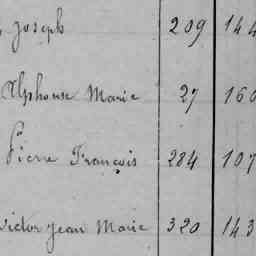 Joseph 209 144
Alphonse Marie 27 160
Pierre François 284 107
Victor Jean Marie 320 143